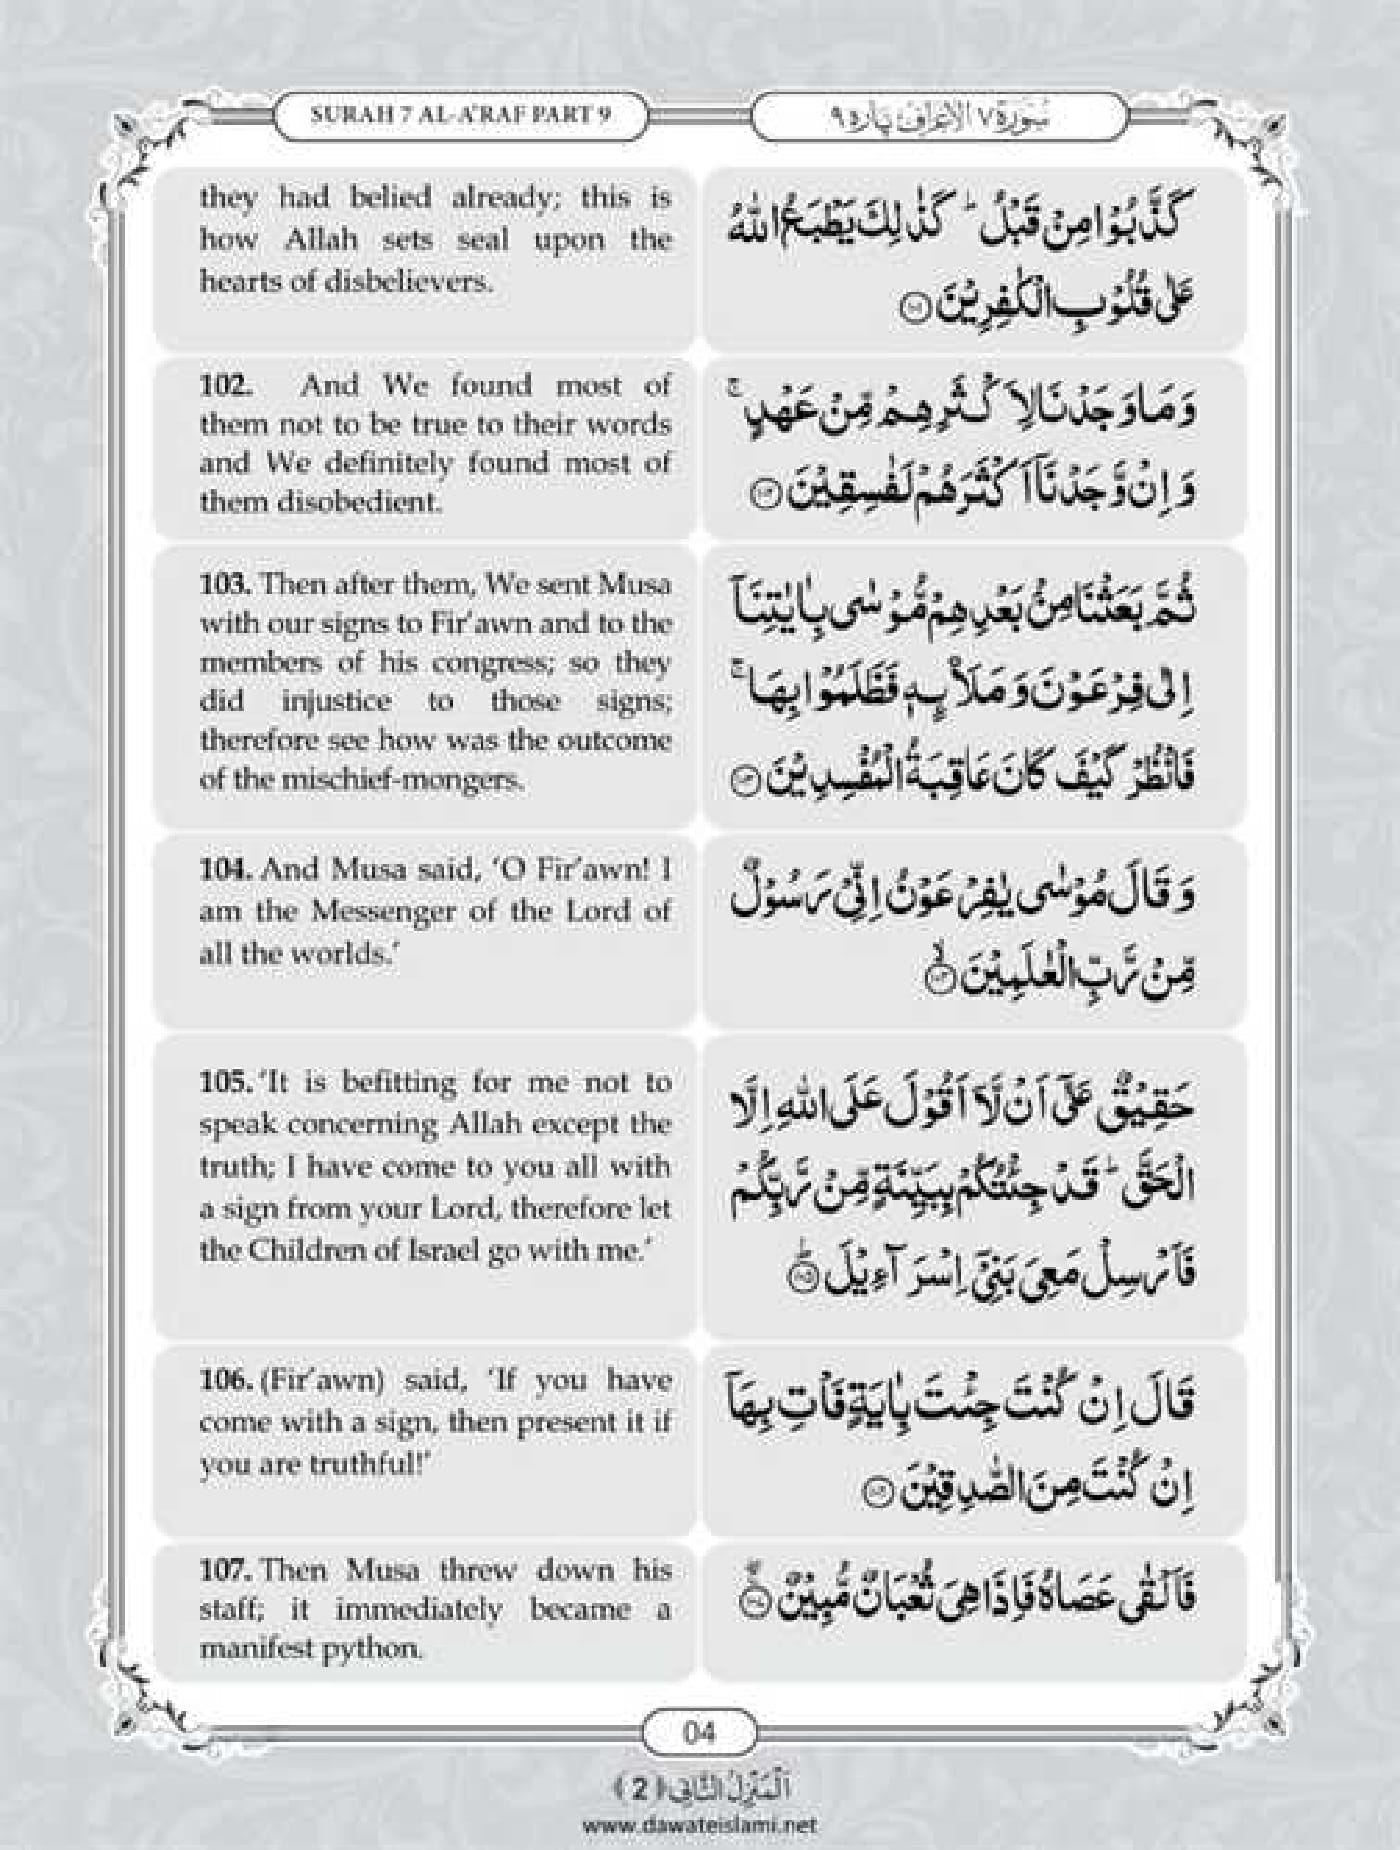 SURAH 7 AL-A'RAF PART 9
سُوْرَۃ ٧ الْاَعْرَاف پَارَہ ٩
they had belied already; this is
how Allah sets seal upon the
hearts of disbelievers.
كَذَّبُوْا مِنْ قَبْلُ ؕ كَذٰلِكَ يَطْبَعُ اللّٰهُ
عَلٰى قُلُوْبِ الْكٰفِرِيْنَ ﴿١٠١﴾
102. And We found most of
them not to be true to their words
and We definitely found most of
them disobedient.
وَ مَا وَجَدْنَا لِاَكْثَرِهِمْ مِّنْ عَهْدٍ ۚ
وَ اِنْ وَّجَدْنَاۤ اَكْثَرَهُمْ لَفٰسِقِيْنَ ﴿١٠٢﴾
103. Then after them, We sent Musa
with our signs to Fir'awn and to the
members of his congress; so they
did injustice to those signs;
therefore see how was the outcome
of the mischief-mongers.
ثُمَّ بَعَثْنَا مِنْۢ بَعْدِهِمْ مُّوْسٰى بِاٰيٰتِنَاۤ
اِلٰى فِرْعَوْنَ وَ مَلَا۠ىِٕهٖ فَظَلَمُوْا بِهَا ۚ
فَانْظُرْ كَيْفَ كَانَ عَاقِبَةُ الْمُفْسِدِيْنَ ﴿١٠٣﴾
104. And Musa said, 'O Fir'awn! I
am the Messenger of the Lord of
all the worlds.'
وَ قَالَ مُوْسٰى يٰفِرْعَوْنُ اِنِّيْ رَسُوْلٌ
مِّنْ رَّبِّ الْعٰلَمِيْنَ ﴿١٠٤﴾ۙ
105. 'It is befitting for me not to
speak concerning Allah except the
truth; I have come to you all with
a sign from your Lord, therefore let
the Children of Israel go with me.'
حَقِيْقٌ عَلٰۤى اَنْ لَّاۤ اَقُوْلَ عَلَى اللّٰهِ اِلَّا
الْحَقَّ ؕ قَدْ جِئْتُكُمْ بِبَيِّنَةٍ مِّنْ رَّبِّكُمْ
فَاَرْسِلْ مَعِيَ بَنِيْۤ اِسْرَآءِيْلَ ﴿١٠٥﴾ؕ
106. (Fir'awn) said, 'If you have
come with a sign, then present it if
you are truthful!'
قَالَ اِنْ كُنْتَ جِئْتَ بِاٰيَةٍ فَاْتِ بِهَاۤ
اِنْ كُنْتَ مِنَ الصّٰدِقِيْنَ ﴿١٠٦﴾
107. Then Musa threw down his
staff; it immediately became a
manifest python.
فَاَلْقٰى عَصَاهُ فَاِذَا هِيَ ثُعْبَانٌ مُّبِيْنٌ ﴿١٠٧﴾ۚۖ
04
اَلْمَنْزِلُ الثَّانِي ﴿2﴾
www.dawateislami.net